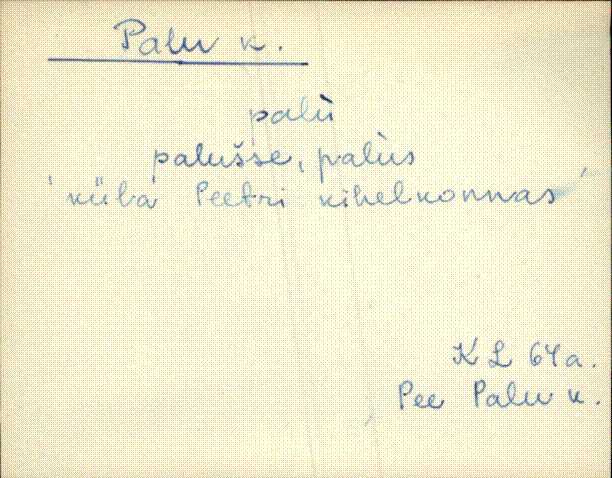 Palu k.
palù
palušse, palùs
'küla Peetri kihelkonnas'
KL 64a.
Pee Palu k.